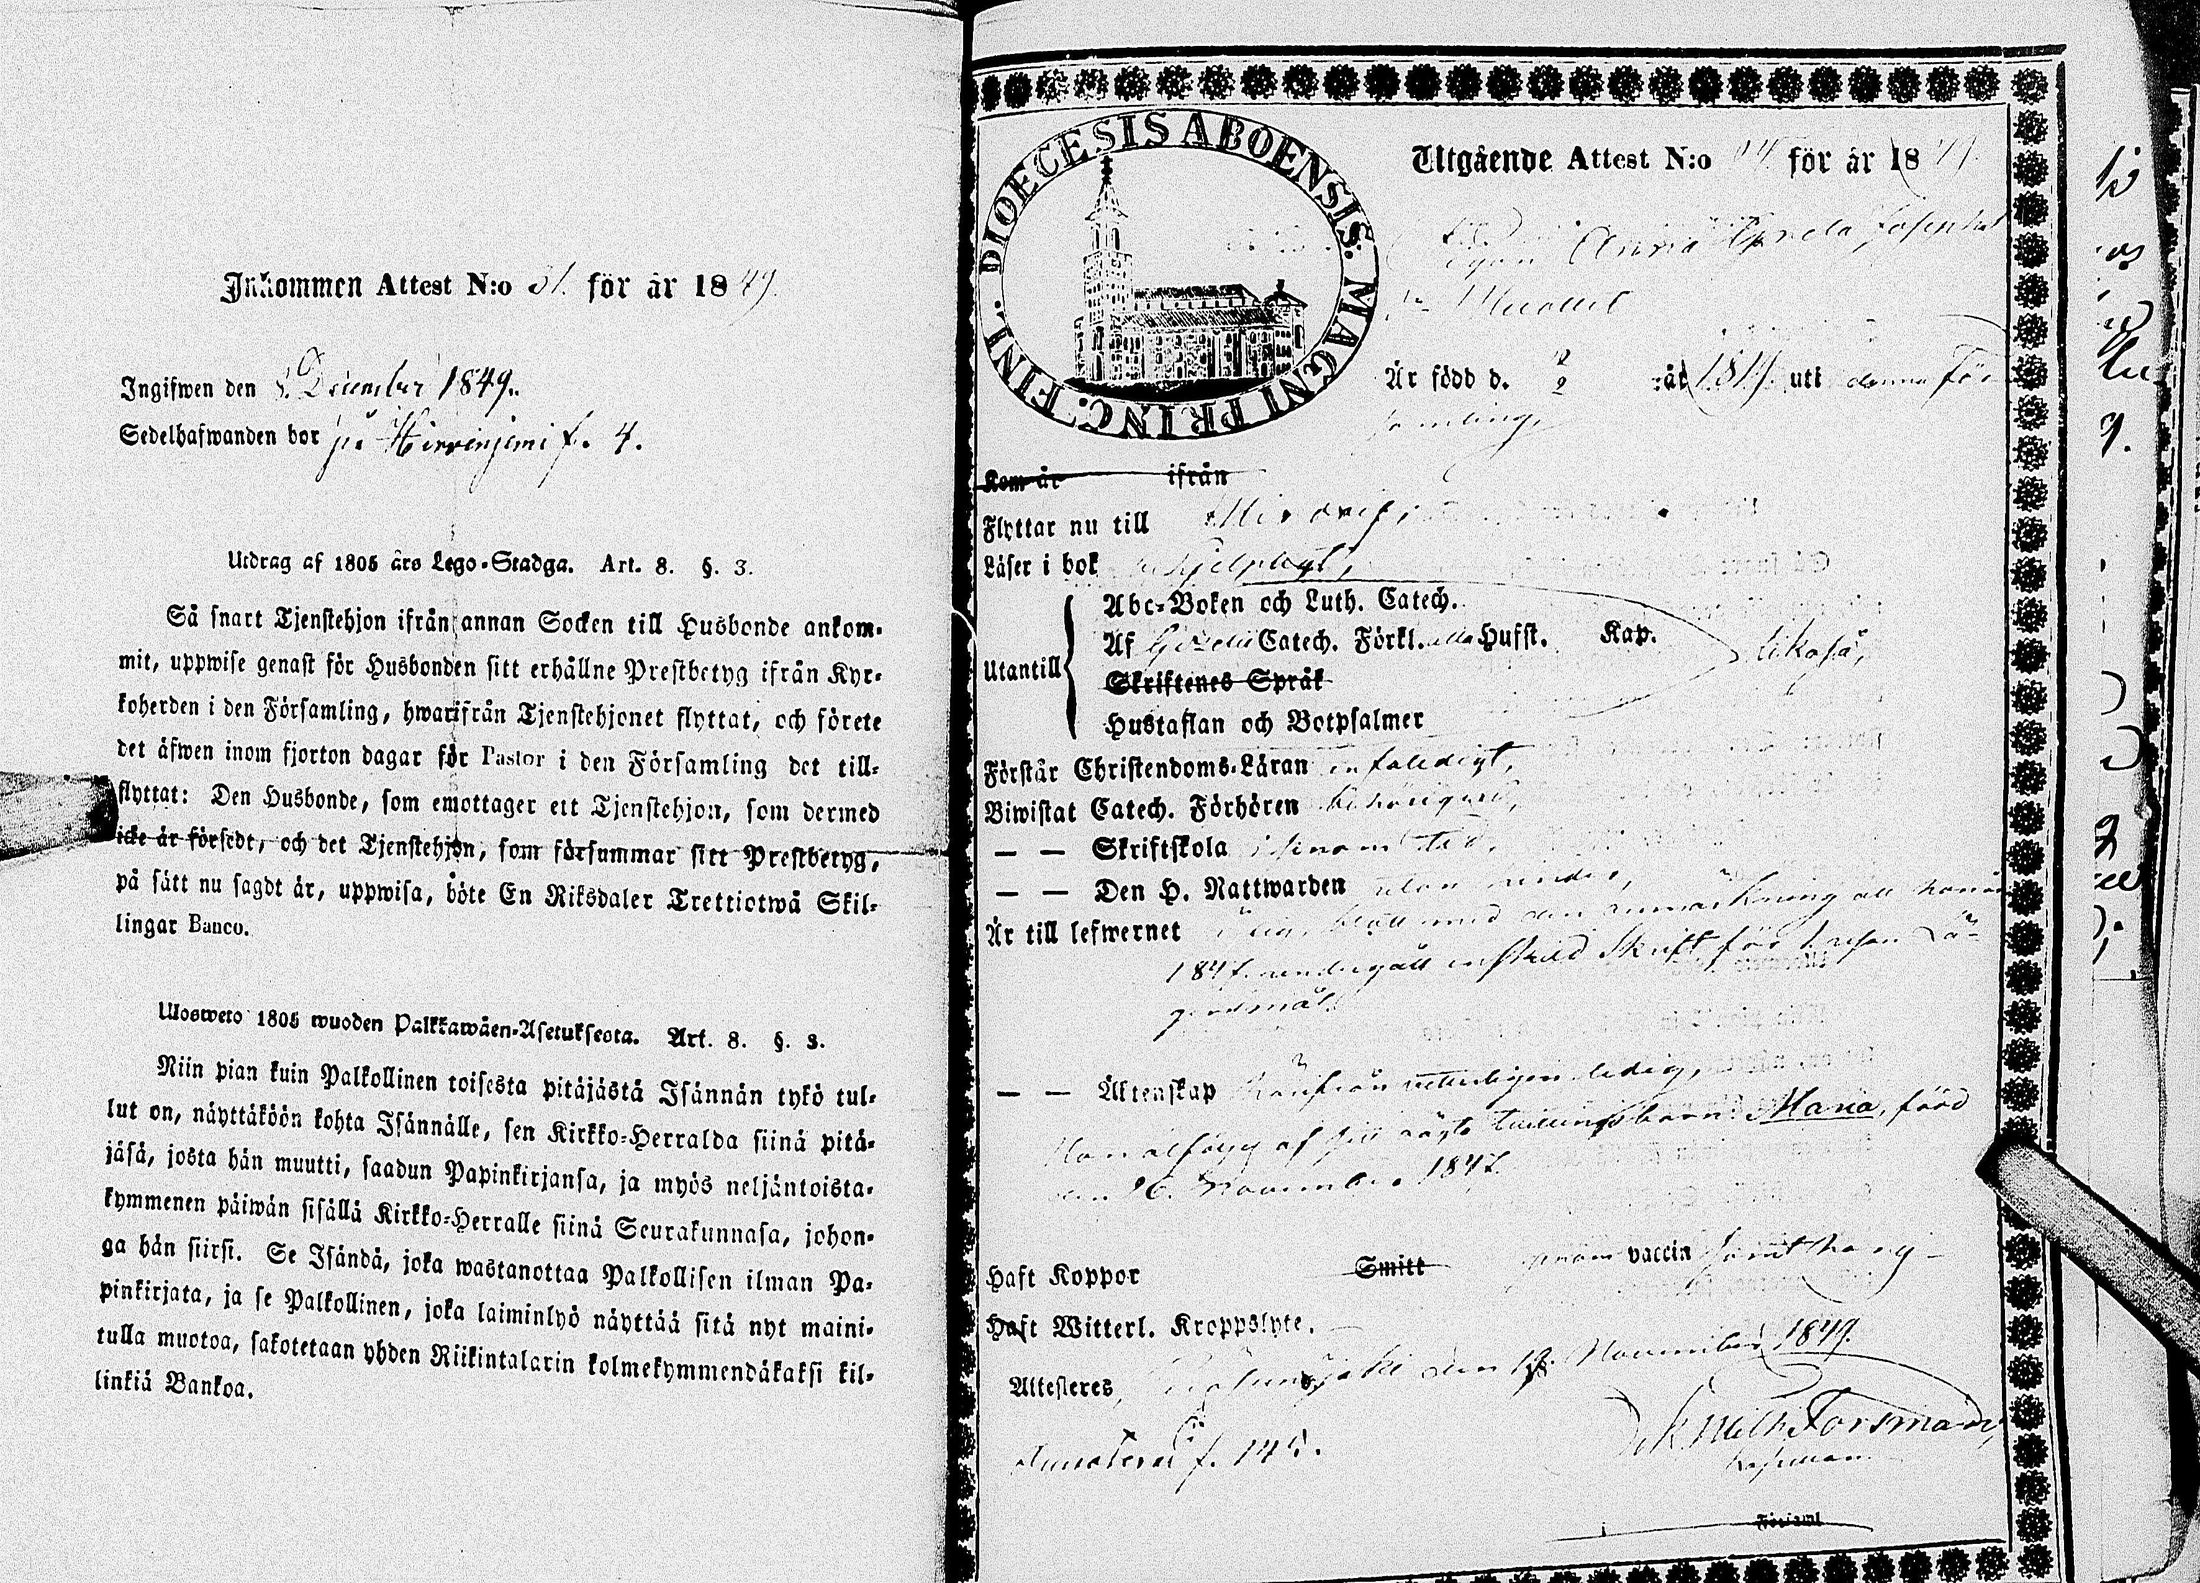 Inkommen Attest N:o 31. för år 1849.
Ingifwen den 8. December 1849.
Sedelhafwanden bor på Hirvinjemi f. 4.
Utdrag af 1805 års Lego-Stadga. Art. 8. §. 3.
Så snart Tjenstehjon ifrån annan Socken till Husbonde ankom-
mit, uppwise genast för Husbonden sitt erhållne Prestbetyg ifrån Kyr-
koherden i den Församling, hwarifrån Tjenstehjonet flyttat, och förete
det äfwen inom fjorton dagar för Pastor i den Församling det till-
flyttat: Den Husbonde, som emottager ett Tjenstehjon, som dermed
icke är försedt, och det Tjenstehjon, som försummar sitt Prestbetyg,
på sätt nu sagdt är, uppwisa, böte En Riksdaler Trettiotwå Skil-
lingar Banco.
Ulosweto 1805 wuoden Palkkawäen-Asetuksesta. Art. 8. §. 3.
Niin pian kuin Palkollinen toisesta pitäjästä Isännän tykö tul-
lut on, näyttäköön kohta Isännälle, sen Kirkko-Herralda siinä pitä-
jäsä, josta hän muutti, saadun Papinkirjansa, ja myös neljäntoista-
kymmenen päiwän sisällä Kirkko-Herralle siinä Seurakunnasa, johon-
ga hän siirsi. Se Isändä, joka wastanottaa Palkollisen ilman Pa-
pinkirjata, ja se Palkollinen, joka laiminlyö näyttää sitä nyt maini-
tulla muotoa, sakotetaan yhden Riikintalarin kolmekymmendäkaksi kil-
linkiä Bankoa.
DIOECESIS ABOENSIS. MAGNI PRINC. FINL.
Utgående Attest N:o för år 1849.
Pigan Anna
Är född d. år 1819. uti denna För-
samling,
Kom år ifrån
Flyttar nu till
Läser i bok hjelpligt,
Utantill
Abc-Boken och Luth. Catech.
Af Gezelii Catech. Förkl. alla Hufst. Kap. likaså,
Skriftenes Språk
Hustaflan och Botpsalmer
Förstår Christendoms-Läran enfaldigt,
Biwistat Catech. Förhören behörigen,
— — Skriftskola i sinom tid,
— — Den H. Nattwarden utan hinder,
Är till lefwernet med den anmärkning att hon år
1847 undergått enskild Skrift för Lä-
gersmål.
— — Äktenskap härifrån veterligen ledig,
Hon åtföljes af sitt oägta barn Maria, född
den 26. November 1847.
Haft Koppor Smitt genom vaccin
Haft Witterl. Kroppslyte.
Attesteras, den 19. November 1849.
f. 145.
Forsman,
Kapellan.
Församl